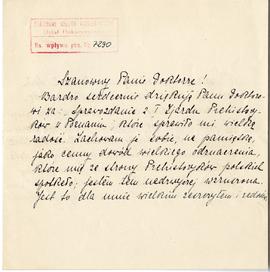 Na wpływu pnz. Nr 7290
Szanowny Panie Doktorze!
Bardzo serdecznie dziękuję Panu Doktoro-
wi za sprawozdanie z I Zjazdu Prehistory-
ków w Poznaniu, które sprawiło mi wielką
radość. Zachowam je sobie, na pamiątkę,
jako cenny dowód wielkiego odznaczenia,
które mię ze strony Prehistoryków polskich
spotkało; jestem tem nadzwyczaj wzruszona.
Jest to dla mnie wielkim zaszczytem i